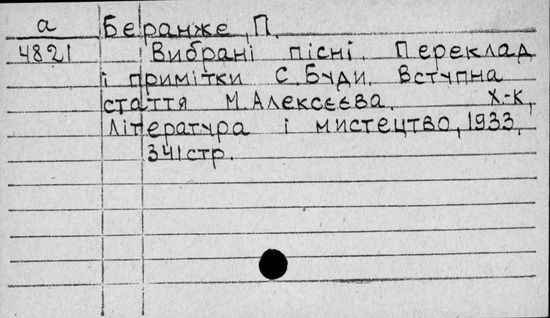 а Беранже, П.
4821 Вибрані пісні. Переклад
і примітки С. Буди. Вступна
стаття М. Алексєєва. Х.-К.,
Література і мистецтво, 1933.
341 стр.